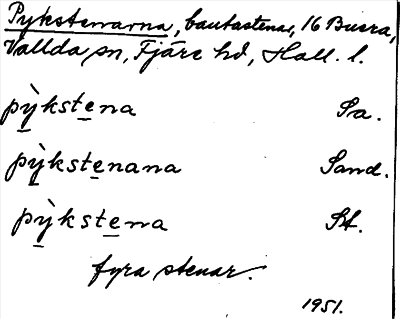 Pykstenarna, bautastenar, 16 Buera,
Vallda sn, Fjäre hd, Hall. l.
pỳkstena Sa.
pỳkstenana Sand.
pỳkstena St.
fyra stenar.
1951.